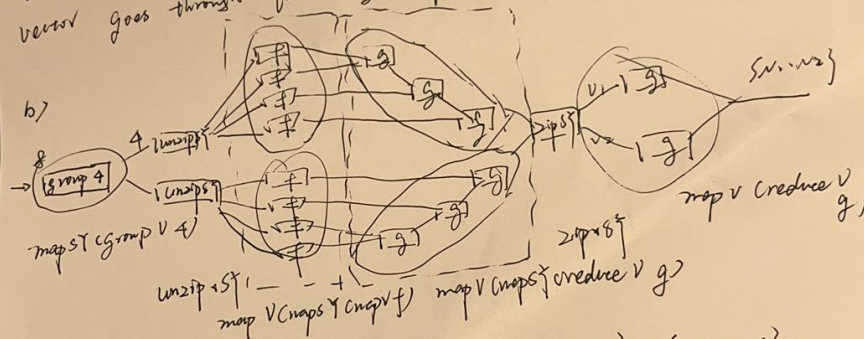 vector goes through
b)
8
group 4
4
unzipsγ
unzipsγ
f
f
f
f
f
f
f
f
g
g
g
g
g
g
zipsγ
v1
g
v2
g
{v1, v2}
mapsγ (group v 4)
unzipxsγ
map v (mapsγ (mapvf)
map v (mapsγ (reduce v g)
zipxsγ
map v (reduce v
g)